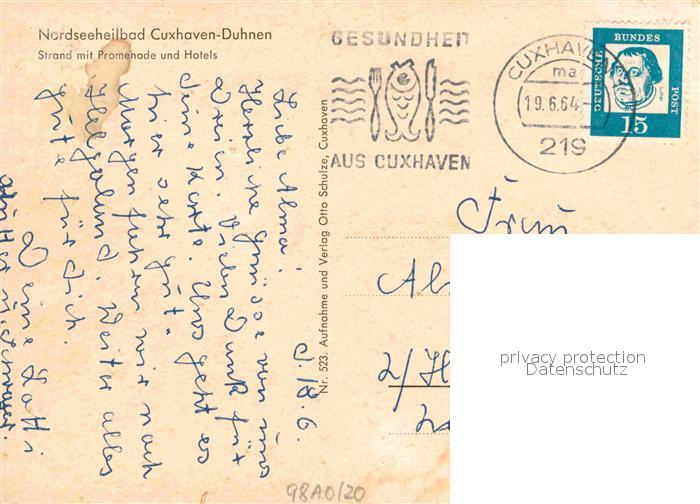 Nordseeheilbad Cuxhaven-Duhnen
Strand mit Promenade und Hotels
GESUNDHEIT
AUS CUXHAVEN
CUXHAVEN
ma
19.6.64
219
DEUTSCHE BUNDES POST
15
Nr. 523. Aufnahme und Verlag Otto Schulze, Cuxhaven
d. 18.6.
Liebe Alma!
Herzliche Grüsse von uns
Drein. Vielen Dank für
Deine Karte. Uns geht es
hier sehr gut.
Morgen fahren wir nach
Helgoland. Weiter alles
Gute für Dich.
Deine
Frau
Al
2/H
privacy protection
Datenschutz
98A0/20